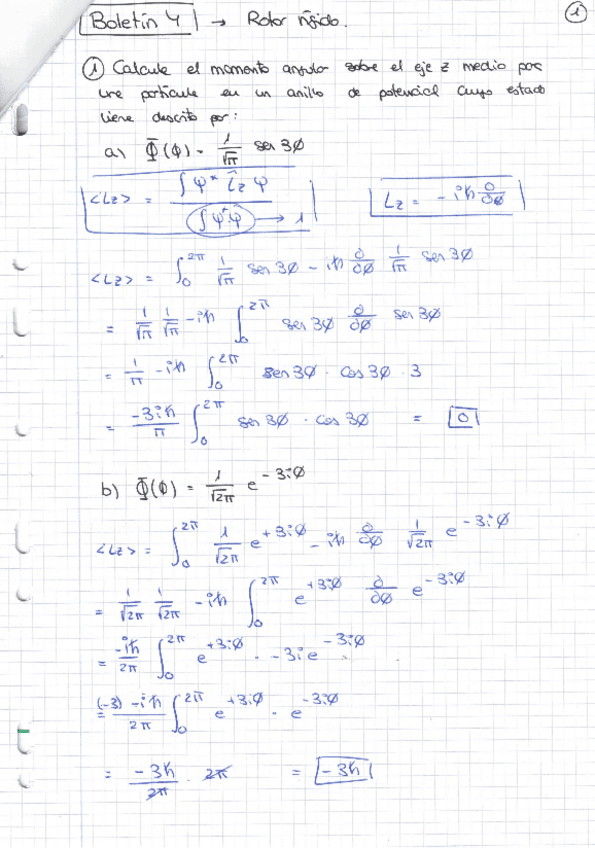 1
Boletín 4 → Rotor rígido.
① Calcule el momento angular sobre el eje z medio por
una partícula en un anillo de potencial cuyo estado
viene descrito por:
a) Φ(φ) = 1/√π sen 3φ
<Lz> = ∫ψ* L̂z ψ / ∫ψ*ψ → 1    Lz = -iħ ∂/∂φ
<Lz> = ∫₀^2π 1/√π sen 3φ - iħ ∂/∂φ 1/√π sen 3φ
= 1/√π 1/√π - iħ ∫₀^2π sen 3φ ∂/∂φ sen 3φ
= 1/π - iħ ∫₀^2π sen 3φ · cos 3φ · 3
= -3iħ/π ∫₀^2π sen 3φ · cos 3φ = 0
b) Φ(φ) = 1/√2π e^-3iφ
<Lz> = ∫₀^2π 1/√2π e^+3iφ - iħ ∂/∂φ 1/√2π e^-3iφ
= 1/√2π 1/√2π - iħ ∫₀^2π e^+3iφ ∂/∂φ e^-3iφ
= -iħ/2π ∫₀^2π e^+3iφ · -3i e^-3iφ
= (-3) -iħ/2π ∫₀^2π e^+3iφ · e^-3iφ
= -3ħ/2π · 2π = -3ħ